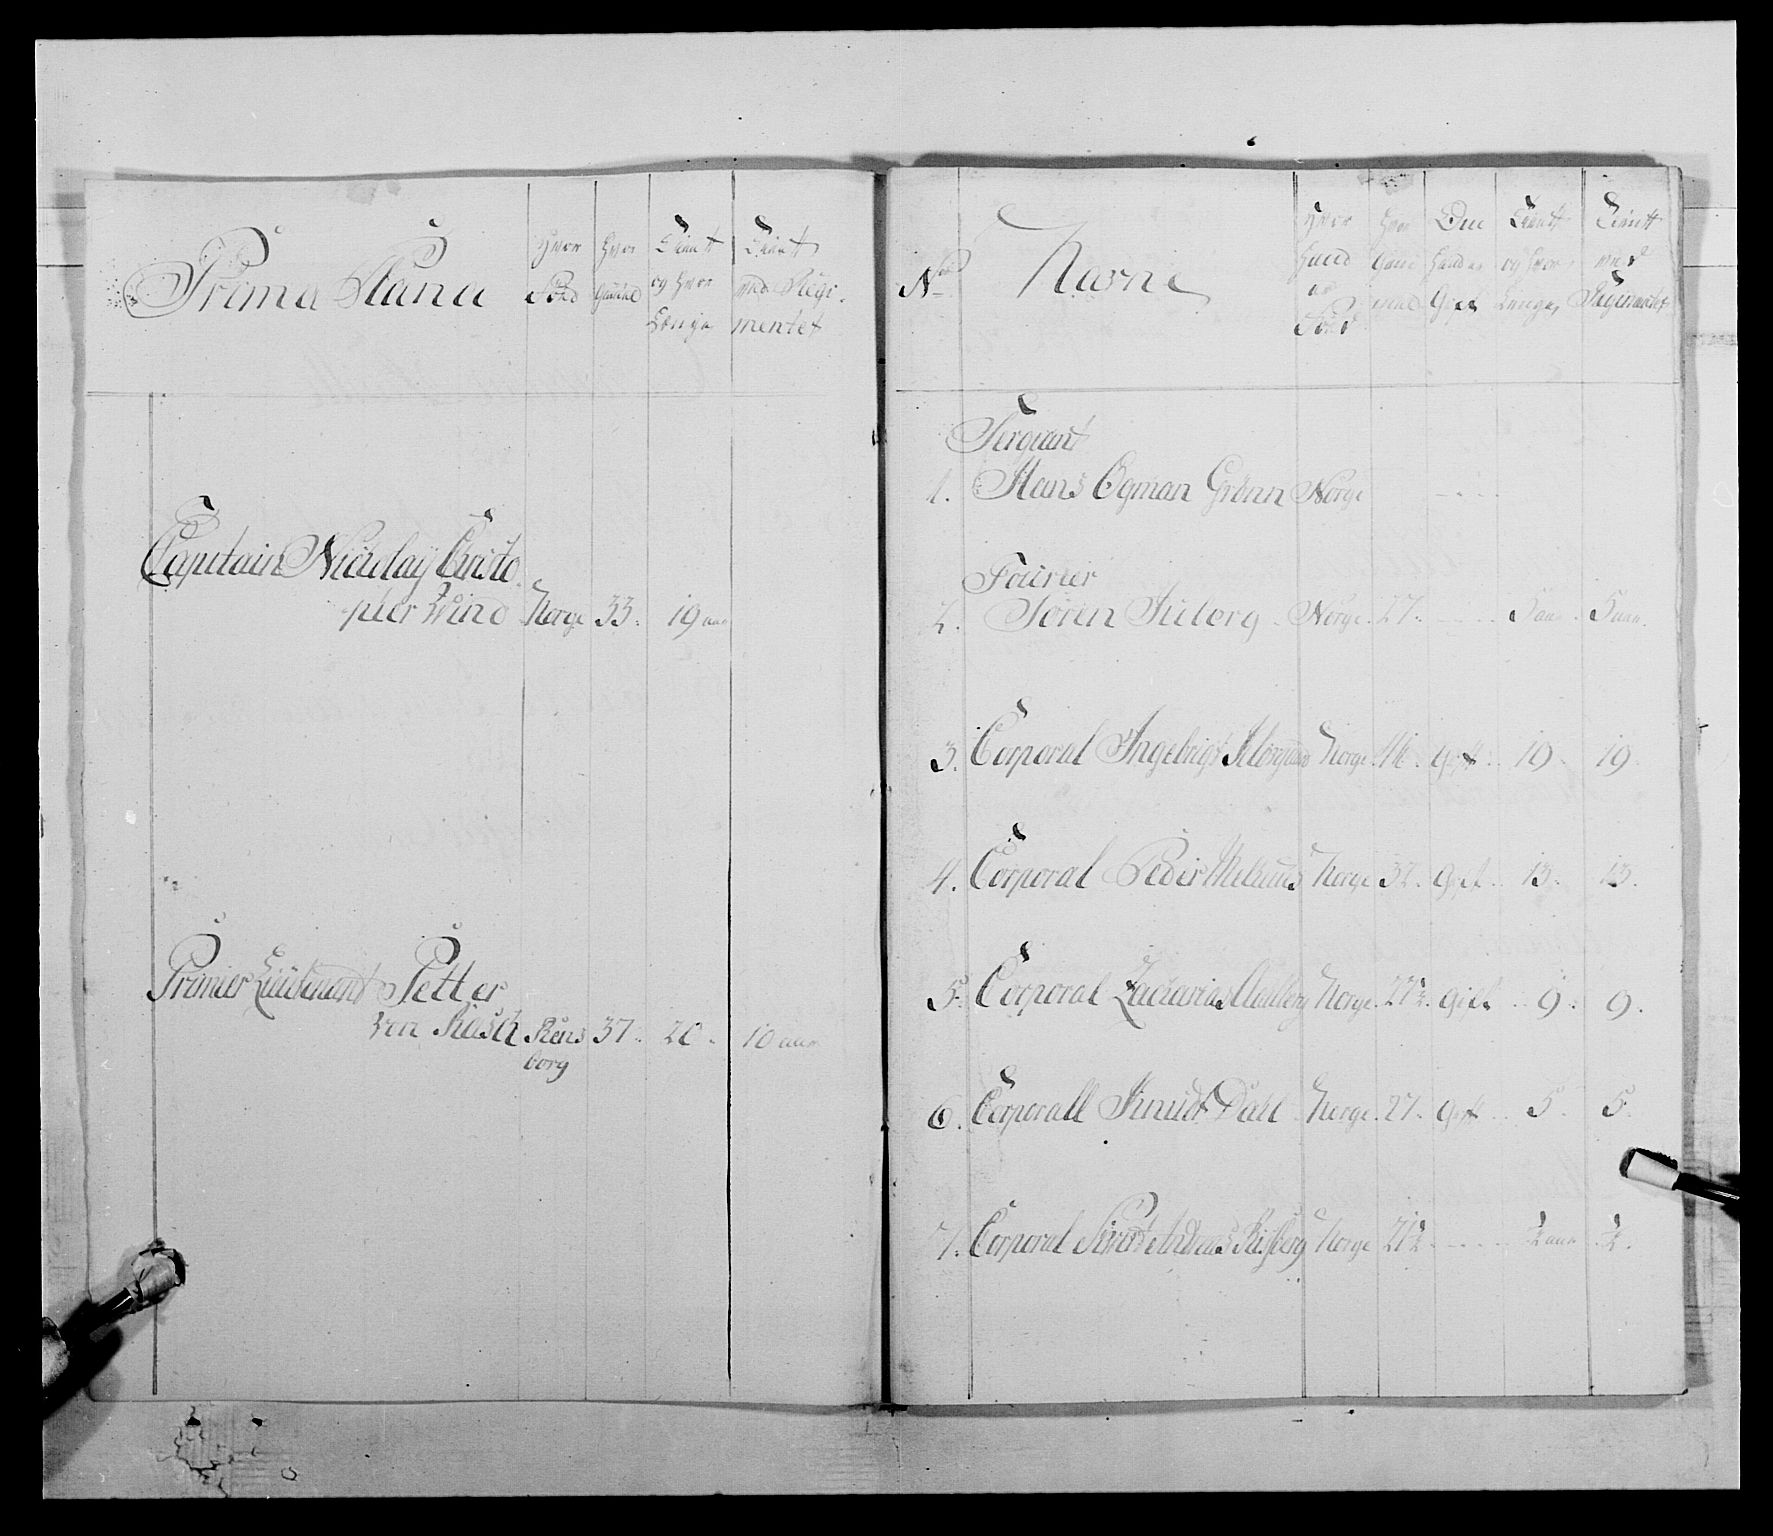 Prima Plana
Hvor
Föed
Hvor
Gammel
Tient
og Hvor
Længe
Tient
ved Regi-
mentet
Capitain Nicolay Christo
pher Wind Norge 33. 19 aar
Primier Lieutenant Petter
von Rasch Rens 37. 20. 10 aar
borg
No
Navne
Hvor
Hand
er
Föed
Hvor
Gam
mel
Om
Hand er
Gift
Tient
og Hvor
Længe
Tient
ved
Regimentet
Sergeant
1. Hans Ogman Grönn Norge
Fourier
2. Sören Norge. 27. 5 aar. 5 aar.
3. Corporal Ingebrigt Norge 46. Gift. 19. 19.
4. Corporal Peder Melhuus Norge 32. Gift. 13. 13.
5. Corporal Zacharias Norge. 27½. Gift. 9. 9.
6. Corporall Knudt Dahl Norge. 27. Gift 5. 5.
7. Corporal Andreas Risberg Norge 21½. ½ aar. ½.